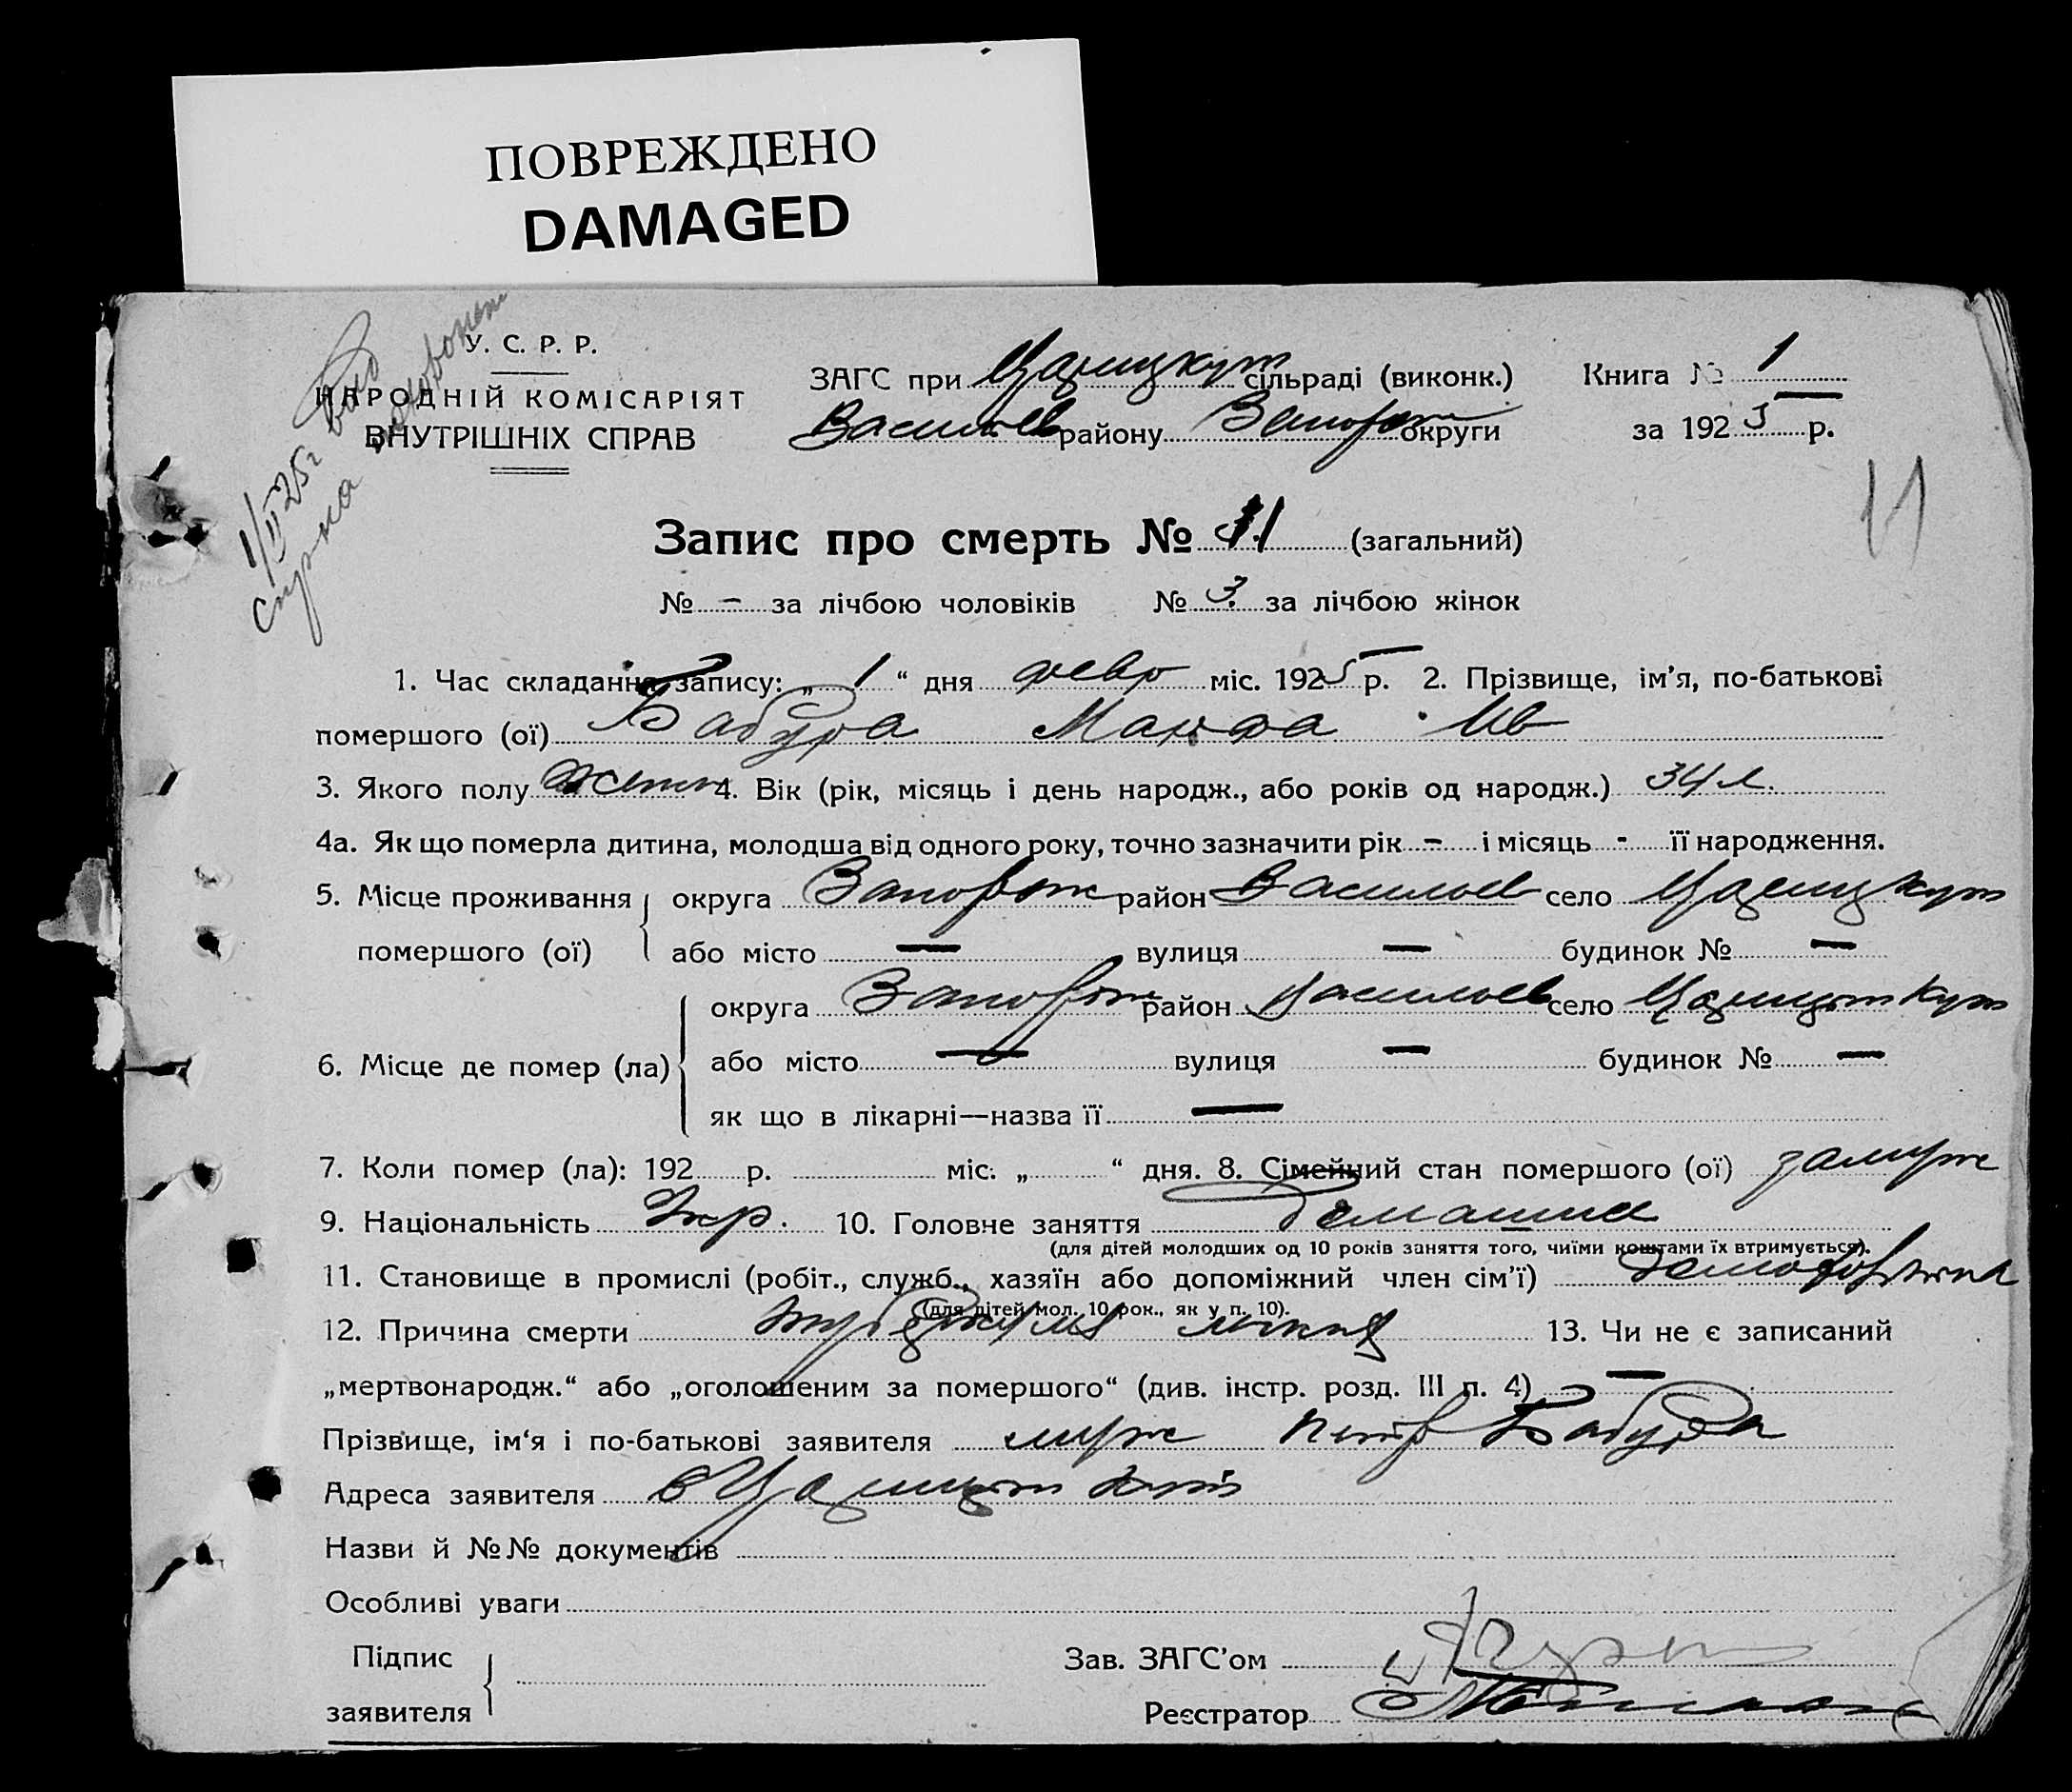 ПОВРЕЖДЕНО
DAMAGED
У. С. Р. Р.
НАРОДНІЙ КОМІСАРІЯТ
ВНУТРІШНІХ СПРАВ
1/II 25г
ЗАГС при Царицкут сільраді (виконк.)
Васильев району Запорож округи
Книга № 1
за 1925 р.
11
Запис про смерть № 11 (загальний)
№ – за лічбою чоловіків № 3 за лічбою жінок
1. Час складання запису: „ 1 “ дня февр міс. 1925 р. 2. Прізвище, ім’я, по-батькові
помершого (ої) Бабура Марфа Ив
3. Якого полу женск 4. Вік (рік, місяць і день народж., або років од народж.) 34 л.
4а. Як що померла дитина, молодша від одного року, точно зазначити рік – і місяць - її народження.
5. Місце проживання округа Запорож район Васильев село Царицкут
помершого (ої) або місто — вулиця — будинок № —
округа Запорож район Васильев село Царицын Кут
6. Місце де помер (ла) або місто — вулиця — будинок № —
як що в лікарні—назва її —
7. Коли помер (ла): 192 р. міс. „ “ дня. 8. Сімейний стан помершого (ої) замуж
9. Національність Укр. 10. Головне заняття домашня
(для дітей молодших од 10 років заняття того, чиїми коштами їх втримується).
11. Становище в промислі (робіт., служб., хазяїн або допоміжний член сім’ї)
(для дітей мол. 10 рок., як у п. 10).
12. Причина смерти туберкулез легких 13. Чи не є записаний
„мертвонародж.“ або „оголошеним за помершого“ (див. інстр. розд. III п. 4) —
Прізвище, ім‘я і по-батькові заявителя муж Петр Бабура
Адреса заявителя с Царицын Кут
Назви й №№ документів
Особливі уваги
Підпис
заявителя
Зав. ЗАГС’ом
Реєстратор